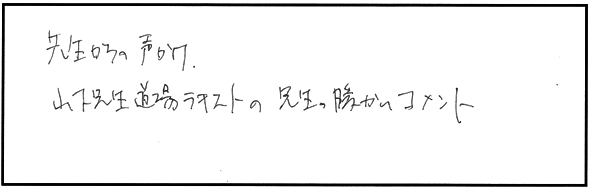 先生からの声かけ.
山下先生道場テキストの先生の暖かいコメント